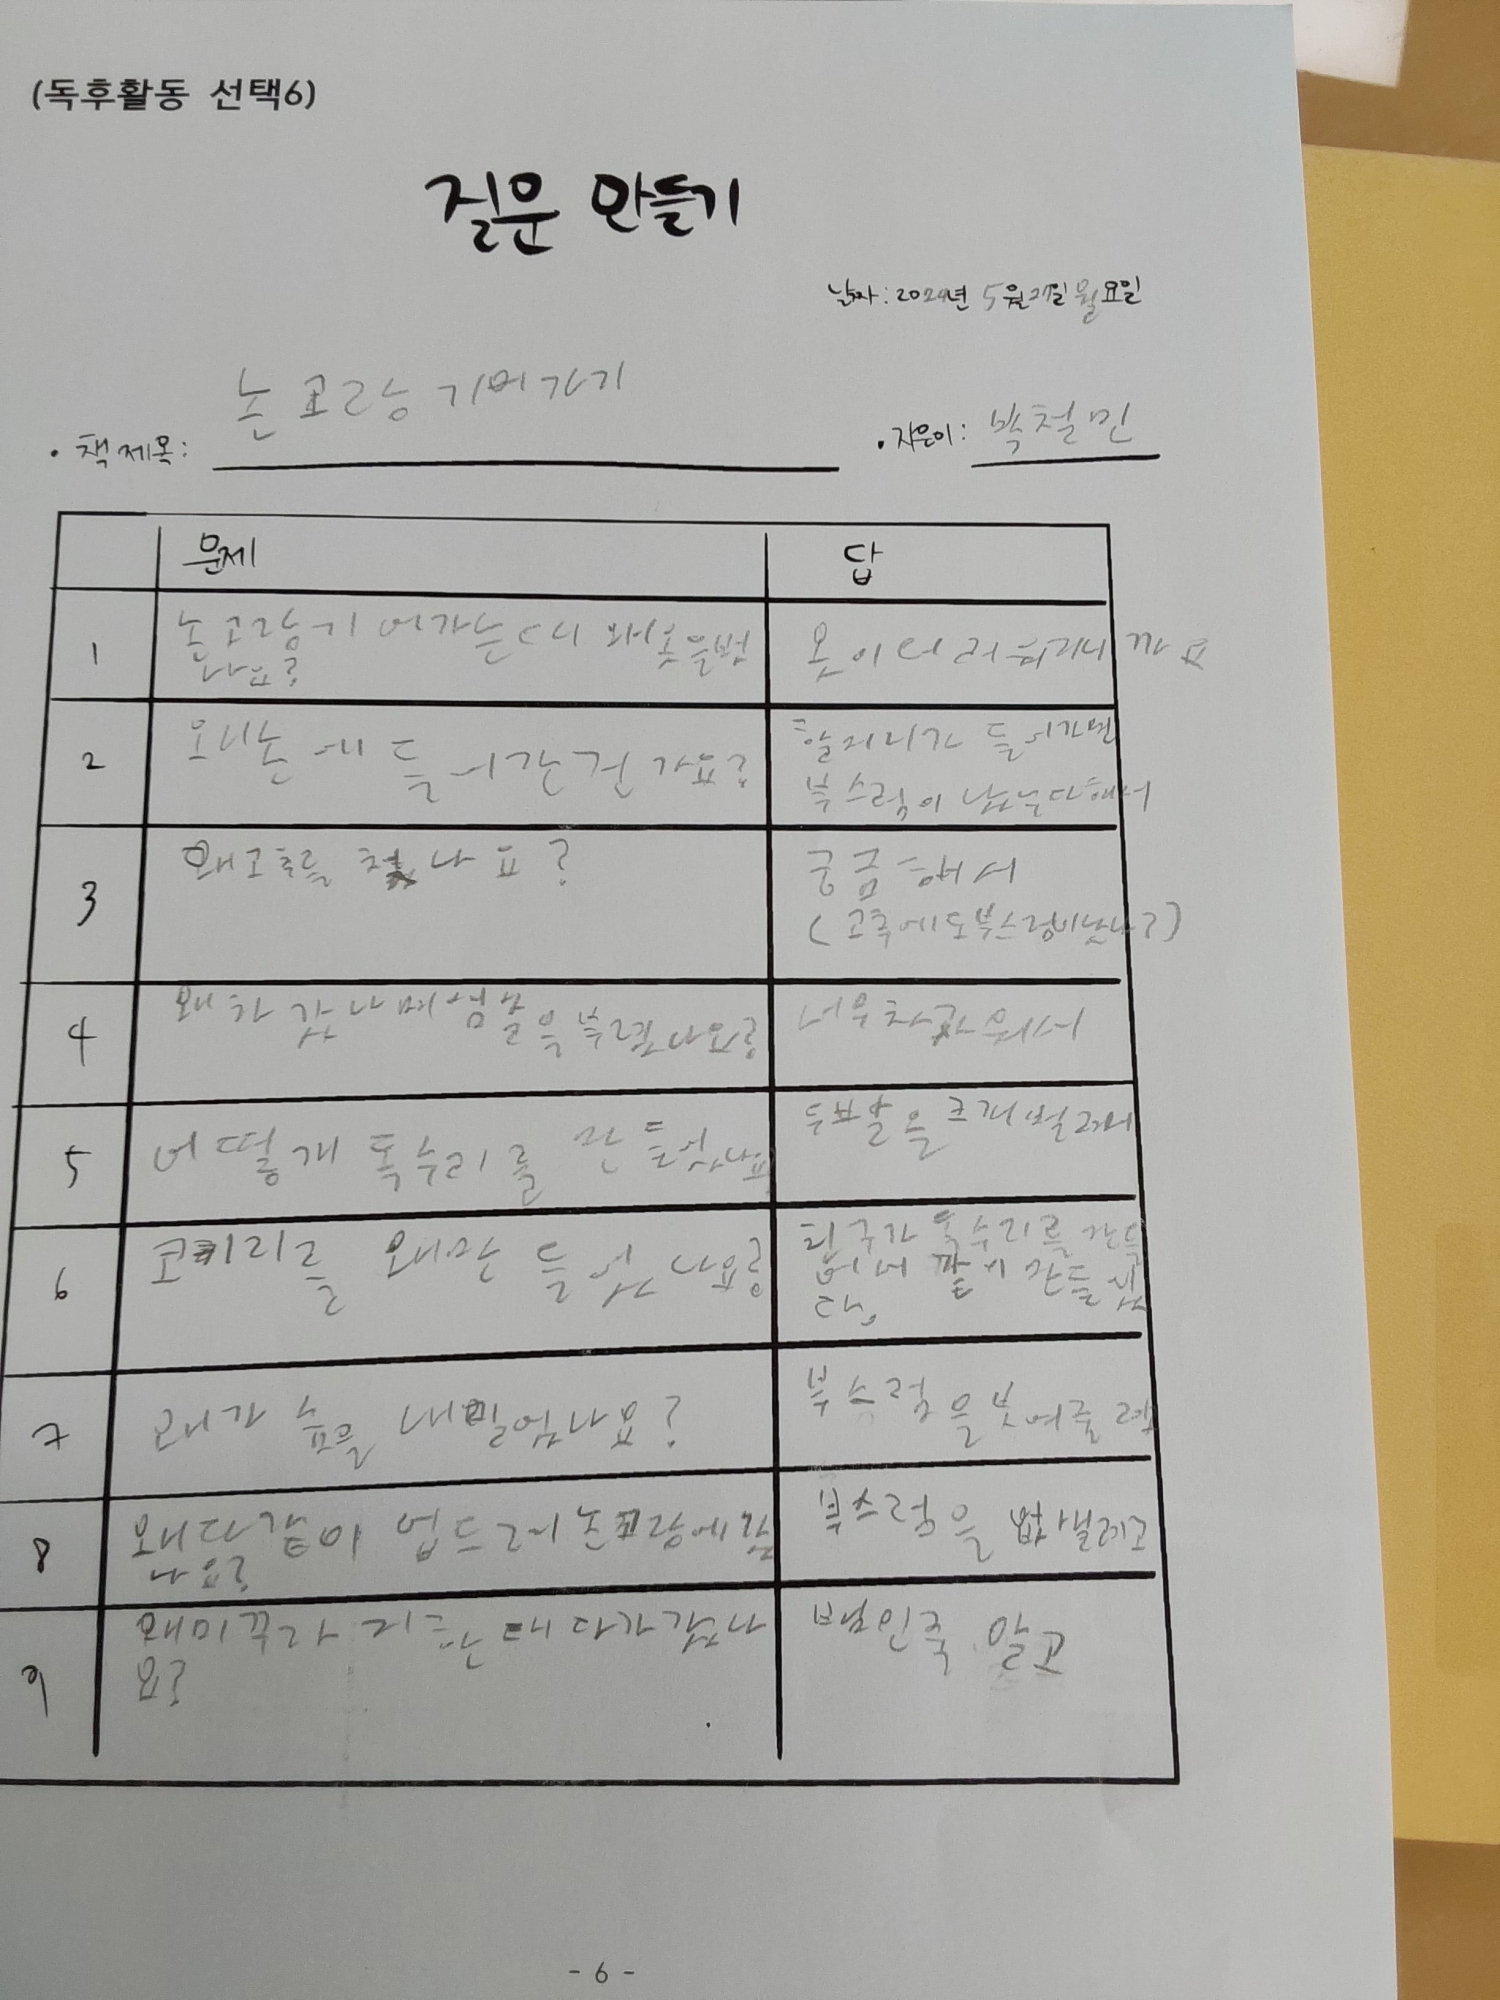 (독후활동 선택6)
질문 만들기
날짜: 2024년 5월 27일 월요일
논고랑 기어가기
• 책 제목:
• 지은이: 박철민
문제 답
1 논고랑기 어가는데 왜옷을벗 옷이더러워지니까요
나요?
2 왜논에 들어간건가요? 할머니가 들어가면
부스럼이 낫는다해서
3 왜고추를 나요? 궁금해서
(고추에도부스럼이났나?)
4 왜차갑나며 을부렸나요? 너무차가워서
5 어떻게 독수리를 만들었나요 두발을크게벌려서
6 코끼리를 왜만 들었나요? 친구가 독수리를 만들
어서 같이 만들었
다.
7 왜가 숨을 내밀었나요? 부스럼을보여줄려
8 왜다같이 업드려논고랑에갔 부스럼을 없샐려고
나요?
9 왜미꾸라지한테다가갔나 뱀인줄 알고
요?
- 6 -